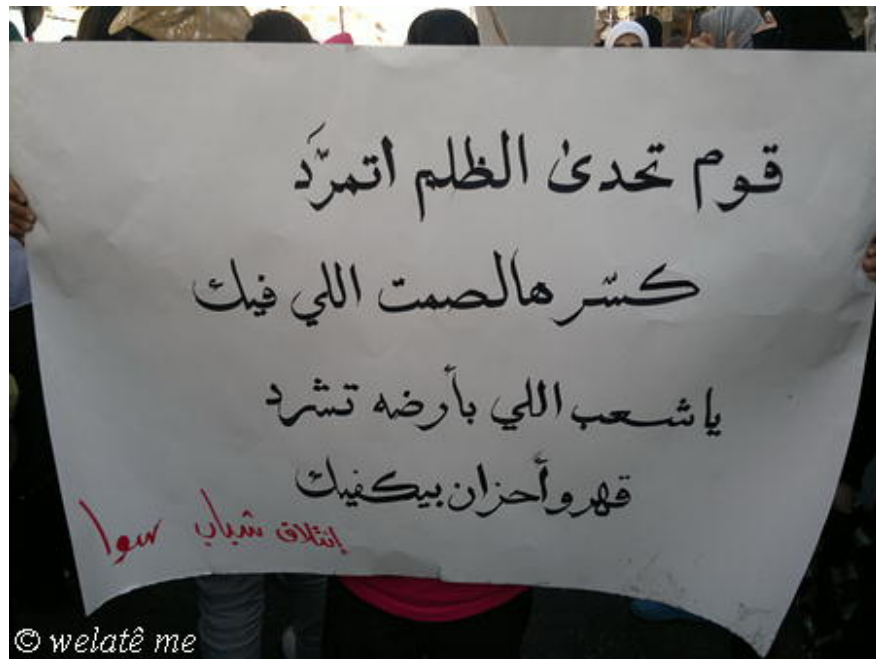 قوم تحدى الظلم اتمرَّد
كسّر هالصمت اللي فيك
يا شعب اللي بأرضه تشرد
قهر وأحزان بيكفيك
إئتلاف شباب سوا
© welatê me